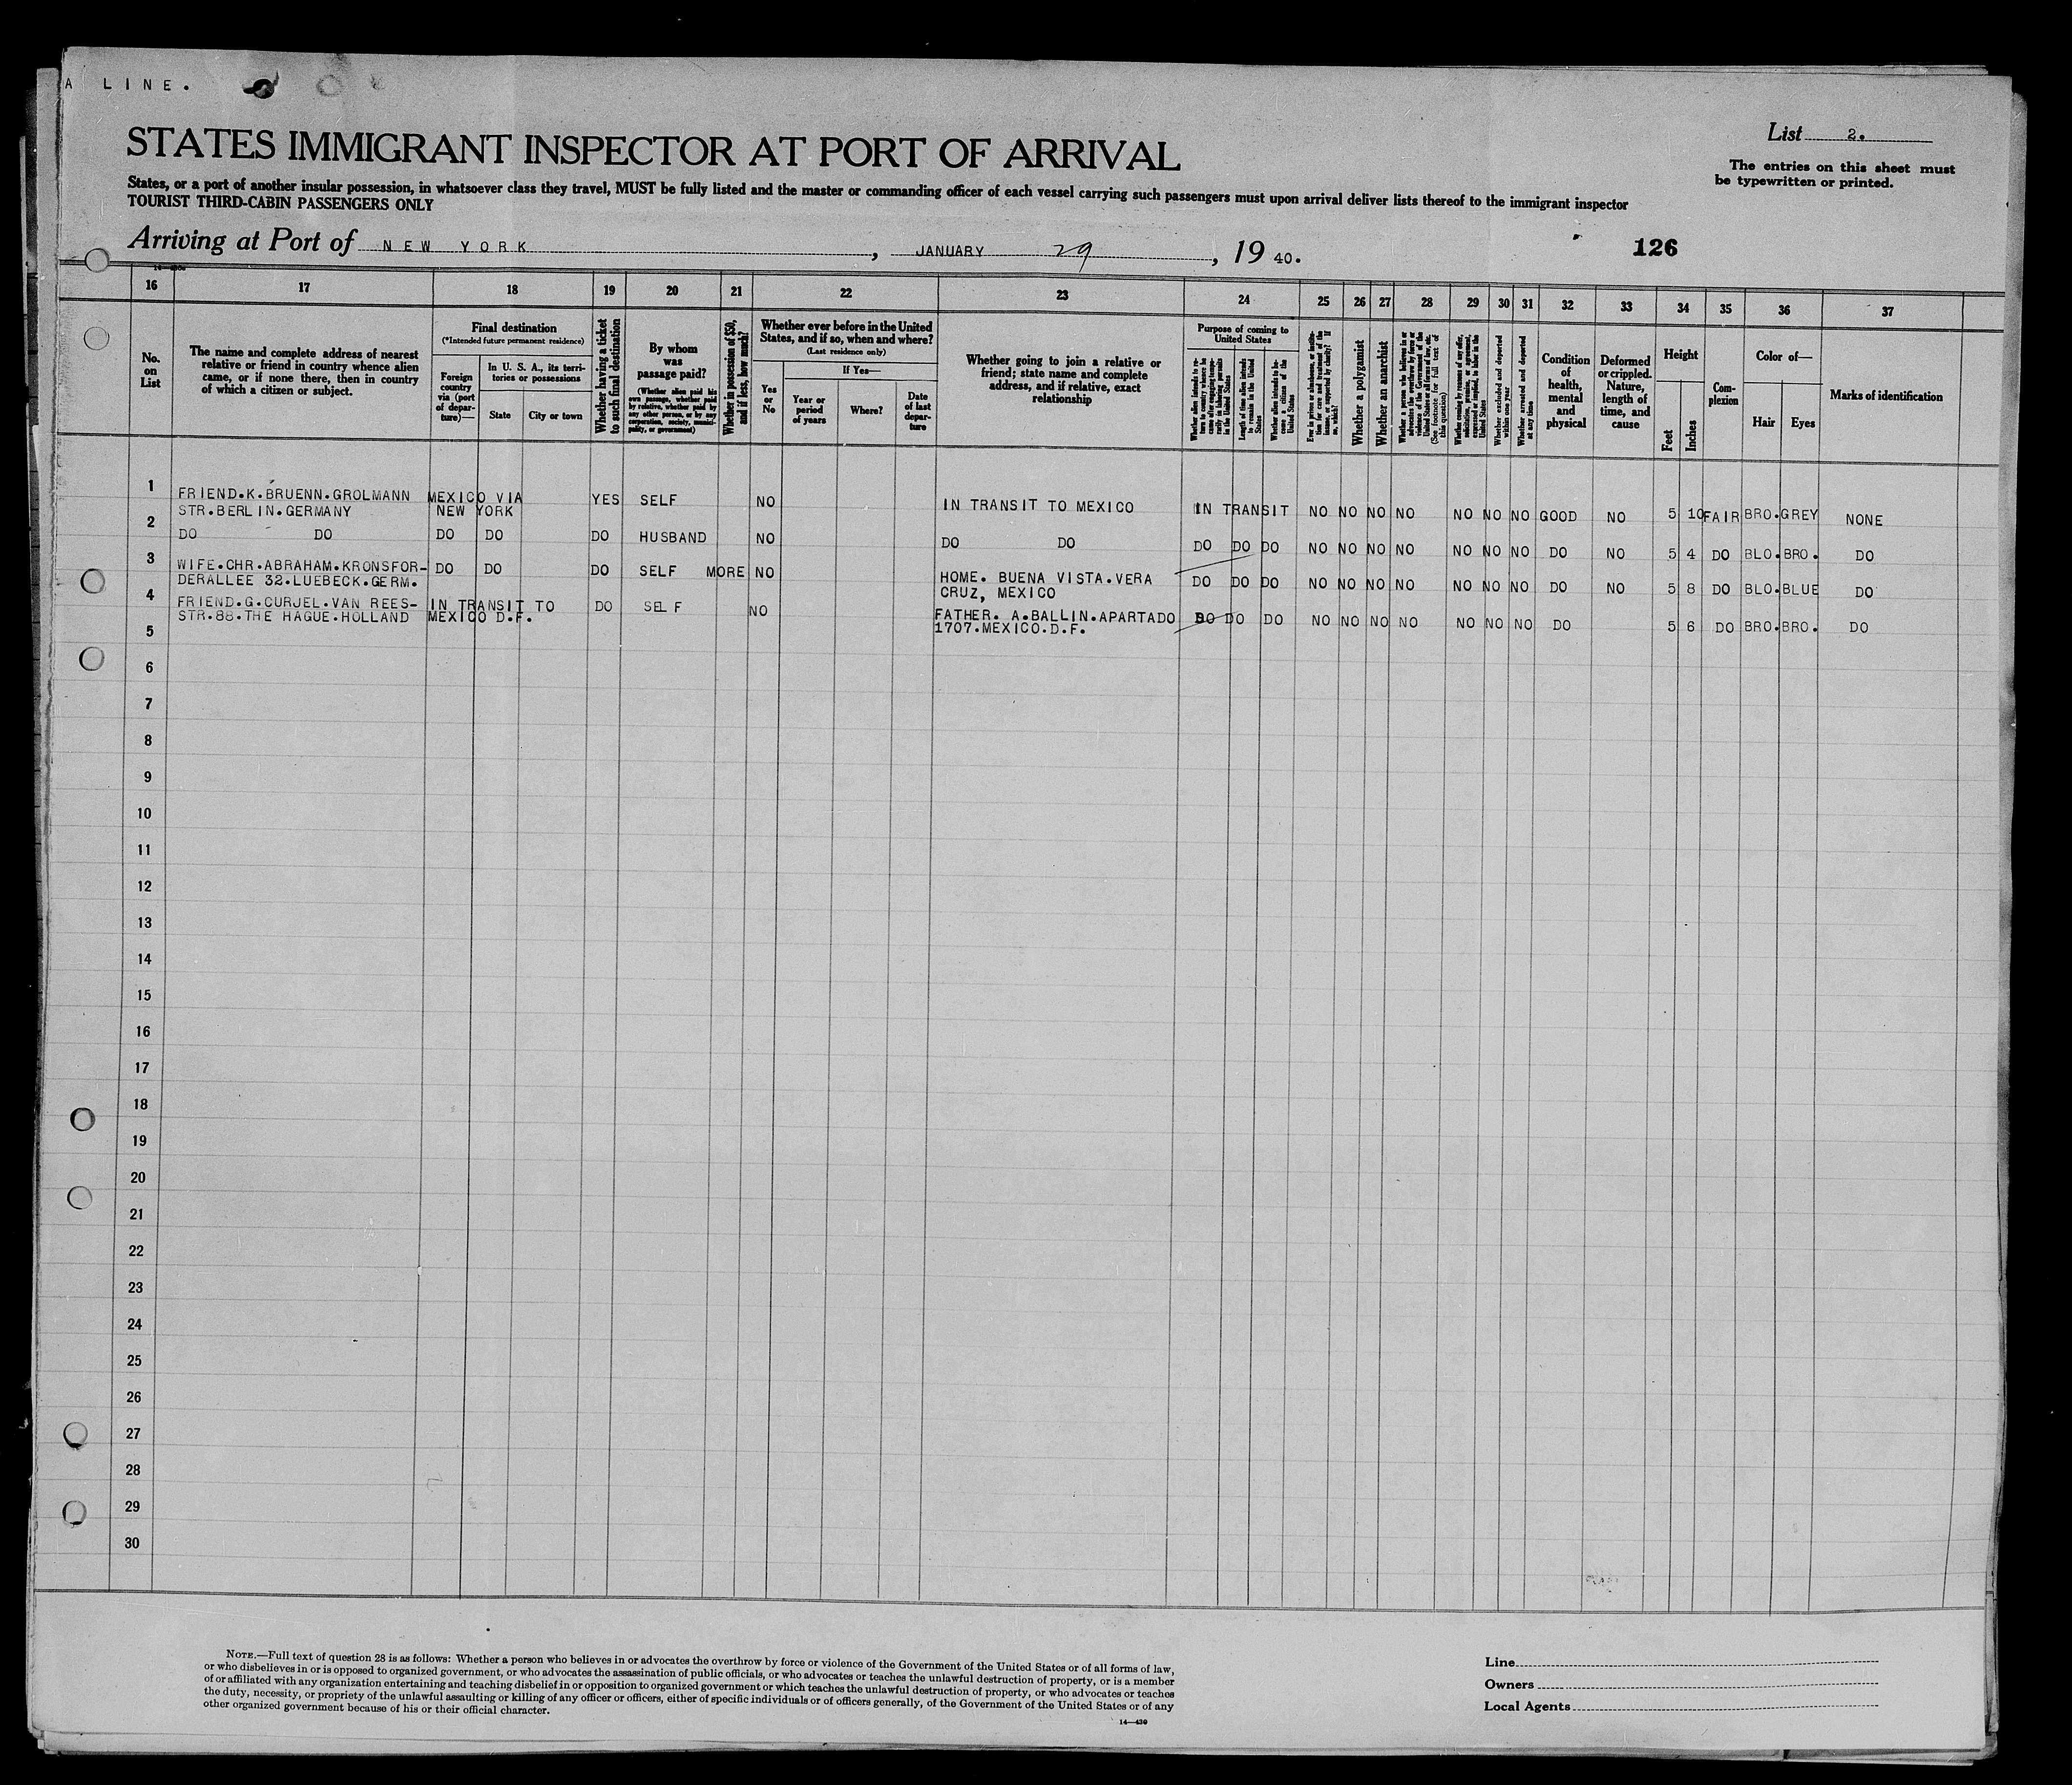 A LINE.
List 2.
STATES IMMIGRANT INSPECTOR AT PORT OF ARRIVAL
The entries on this sheet must
be typewritten or printed.
States, or a port of another insular possession, in whatsoever class they travel, MUST be fully listed and the master or commanding officer of each vessel carrying such passengers must upon arrival deliver lists thereof to the immigrant inspector
TOURIST THIRD-CABIN PASSENGERS ONLY
Arriving at Port of NEW YORK, JANUARY 29, 19 40.
126
16 17 18 19 20 21 22 23 24 25 26 27 28 29 30 31 32 33 34 35 36 37
No. on List
The name and complete address of nearest
relative or friend in country whence alien
came, or if none there, then in country
of which a citizen or subject.
Final destination
(*Intended future permanent residence)
Foreign country via (port of departure)—
In U. S. A., its territories or possessions
State
City or town
Whether having a ticket to such final destination
By whom was passage paid?
(Whether alien paid his own passage, whether paid by relative, whether paid by any other person, or by any corporation, society, municipality, or government)
Whether in possession of $50, and if less, how much?
Whether ever before in the United
States, and if so, when and where?
(Last residence only)
Yes or No
If Yes—
Year or period of years
Where?
Date of last departure
Whether going to join a relative or
friend; state name and complete
address, and if relative, exact
relationship
Purpose of coming to
United States
Length of time alien intends to remain in the United States
Whether alien intends to become a citizen of the United States
Whether a polygamist
Whether an anarchist
Whether excluded and deported within one year
Whether arrested and deported at any time
Condition of health, mental and physical
Deformed or crippled. Nature, length of time, and cause
Height
Feet
Inches
Complexion
Color of—
Hair
Eyes
Marks of identification
1 FRIEND.K.BRUENN.GROLMANN MEXICO VIA YES SELF NO IN TRANSIT TO MEXICO IN TRANSIT NO NO NO NO NO NO NO GOOD NO 5 10 FAIR BRO. GREY NONE
STR.BERLIN.GERMANY NEW YORK
2 DO DO DO DO DO HUSBAND NO DO DO DO DO DO NO NO NO NO NO NO NO DO NO 5 4 DO BLO. BRO. DO
3 WIFE.CHR.ABRAHAM.KRONSFOR- DO DO DO SELF MORE NO HOME. BUENA VISTA.VERA DO DO DO NO NO NO NO NO NO NO DO NO 5 8 DO BLO. BLUE DO
DERALLEE 32.LUEBECK.GERM. CRUZ, MEXICO
4 FRIEND.G.CURJEL.VAN REES- IN TRANSIT TO DO SELF NO FATHER. A.BALLIN.APARTADO DO DO DO NO NO NO NO NO NO NO DO 5 6 DO BRO. BRO. DO
STR.88.THE HAGUE.HOLLAND MEXICO D.F. 1707.MEXICO.D.F.
5
6
7
8
9
10
11
12
13
14
15
16
17
18
19
20
21
22
23
24
25
26
27
28
29
30
NOTE.—Full text of question 28 is as follows: Whether a person who believes in or advocates the overthrow by force or violence of the Government of the United States or of all forms of law,
or who disbelieves in or is opposed to organized government, or who advocates the assassination of public officials, or who advocates or teaches the unlawful destruction of property, or is a member
of or affiliated with any organization entertaining and teaching disbelief in or opposition to organized government or which teaches the unlawful destruction of property, or who advocates or teaches
the duty, necessity, or propriety of the unlawful assaulting or killing of any officer or officers, either of specific individuals or of officers generally, of the Government of the United States or of any
other organized government because of his or their official character.
14—430
Line
Owners
Local Agents